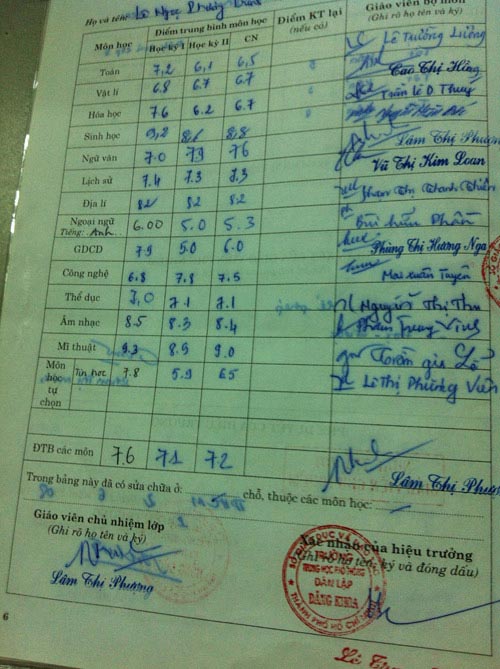 Họ và tên: Lê Ngọc Phương
Môn học Điểm trung bình môn học Điểm KT lại (nếu có) Giáo viên bộ môn (Ghi rõ họ tên và ký)
Học kỳ I Học kỳ II CN
Toán 7,2 6,1 6,5 Lê Trường Lương
Vật lí 6.8 6.7 6.7 Cao Thị Hồng
Hóa học 7.6 6.2 6.7 Trần Lê D Thuỵ
Sinh học 9,2 8,6 8,8
Ngữ văn 7.0 7.9 7.6 Lâm Thị Phương
Lịch sử 7.4 7.3 7.3 Vũ Thị Kim Loan
Địa lí 8.2 8.2 8.2 Phan Thị Thanh
Ngoại ngữ
Tiếng: Anh 6.00 5.0 5.3 Bùi Phần
GDCD 7.9 5.0 6.0 Phùng Thị Hương Nga
Công nghệ 6.8 7.8 7.5 Mai Xuân Tuyên
Thể dục 7.0 7.1 7.1 Nguyễn Thị Thu
Âm nhạc 8.5 8.3 8.4 Phạm Trung
Mĩ thuật 9.3 8.9 9.0 Trần
Môn học tự chọn Tin học 7.8 5.9 6.5 Lê Thị Phương Viên
ĐTB các môn 7.6 7.1 7.2 Lâm Thị Phương
Trong bảng này đã có sửa chữa ở: chỗ, thuộc các môn học:
Giáo viên chủ nhiệm lớp
(Ghi rõ họ tên và ký)
Lâm Thị Phương
Xác nhận của hiệu trưởng
(Ghi rõ họ tên, ký và đóng dấu)
TRƯỜNG
TRUNG HỌC PHỔ THÔNG
DÂN LẬP
ĐĂNG KHOA
THÀNH PHỐ HỒ CHÍ MINH
6
Lê